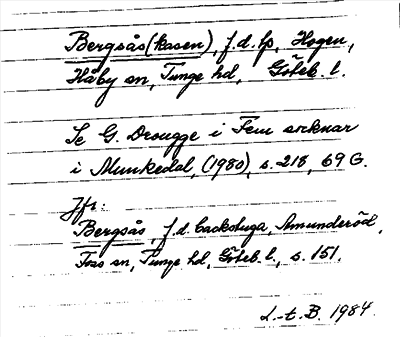 Bergsås (kasen), f.d. lp, Hogen,
Håby sn, Tunge hd, Göteb. l.
Se G. Drougge i Fem socknar
i Munkedal, (1980), s. 218, 69 G.
Jfr:
Bergsås, f.d. backstuga, Amunderöd,
Foss sn, Tunge hd, Göteb. l., s. 151.
L-t. B. 1984.